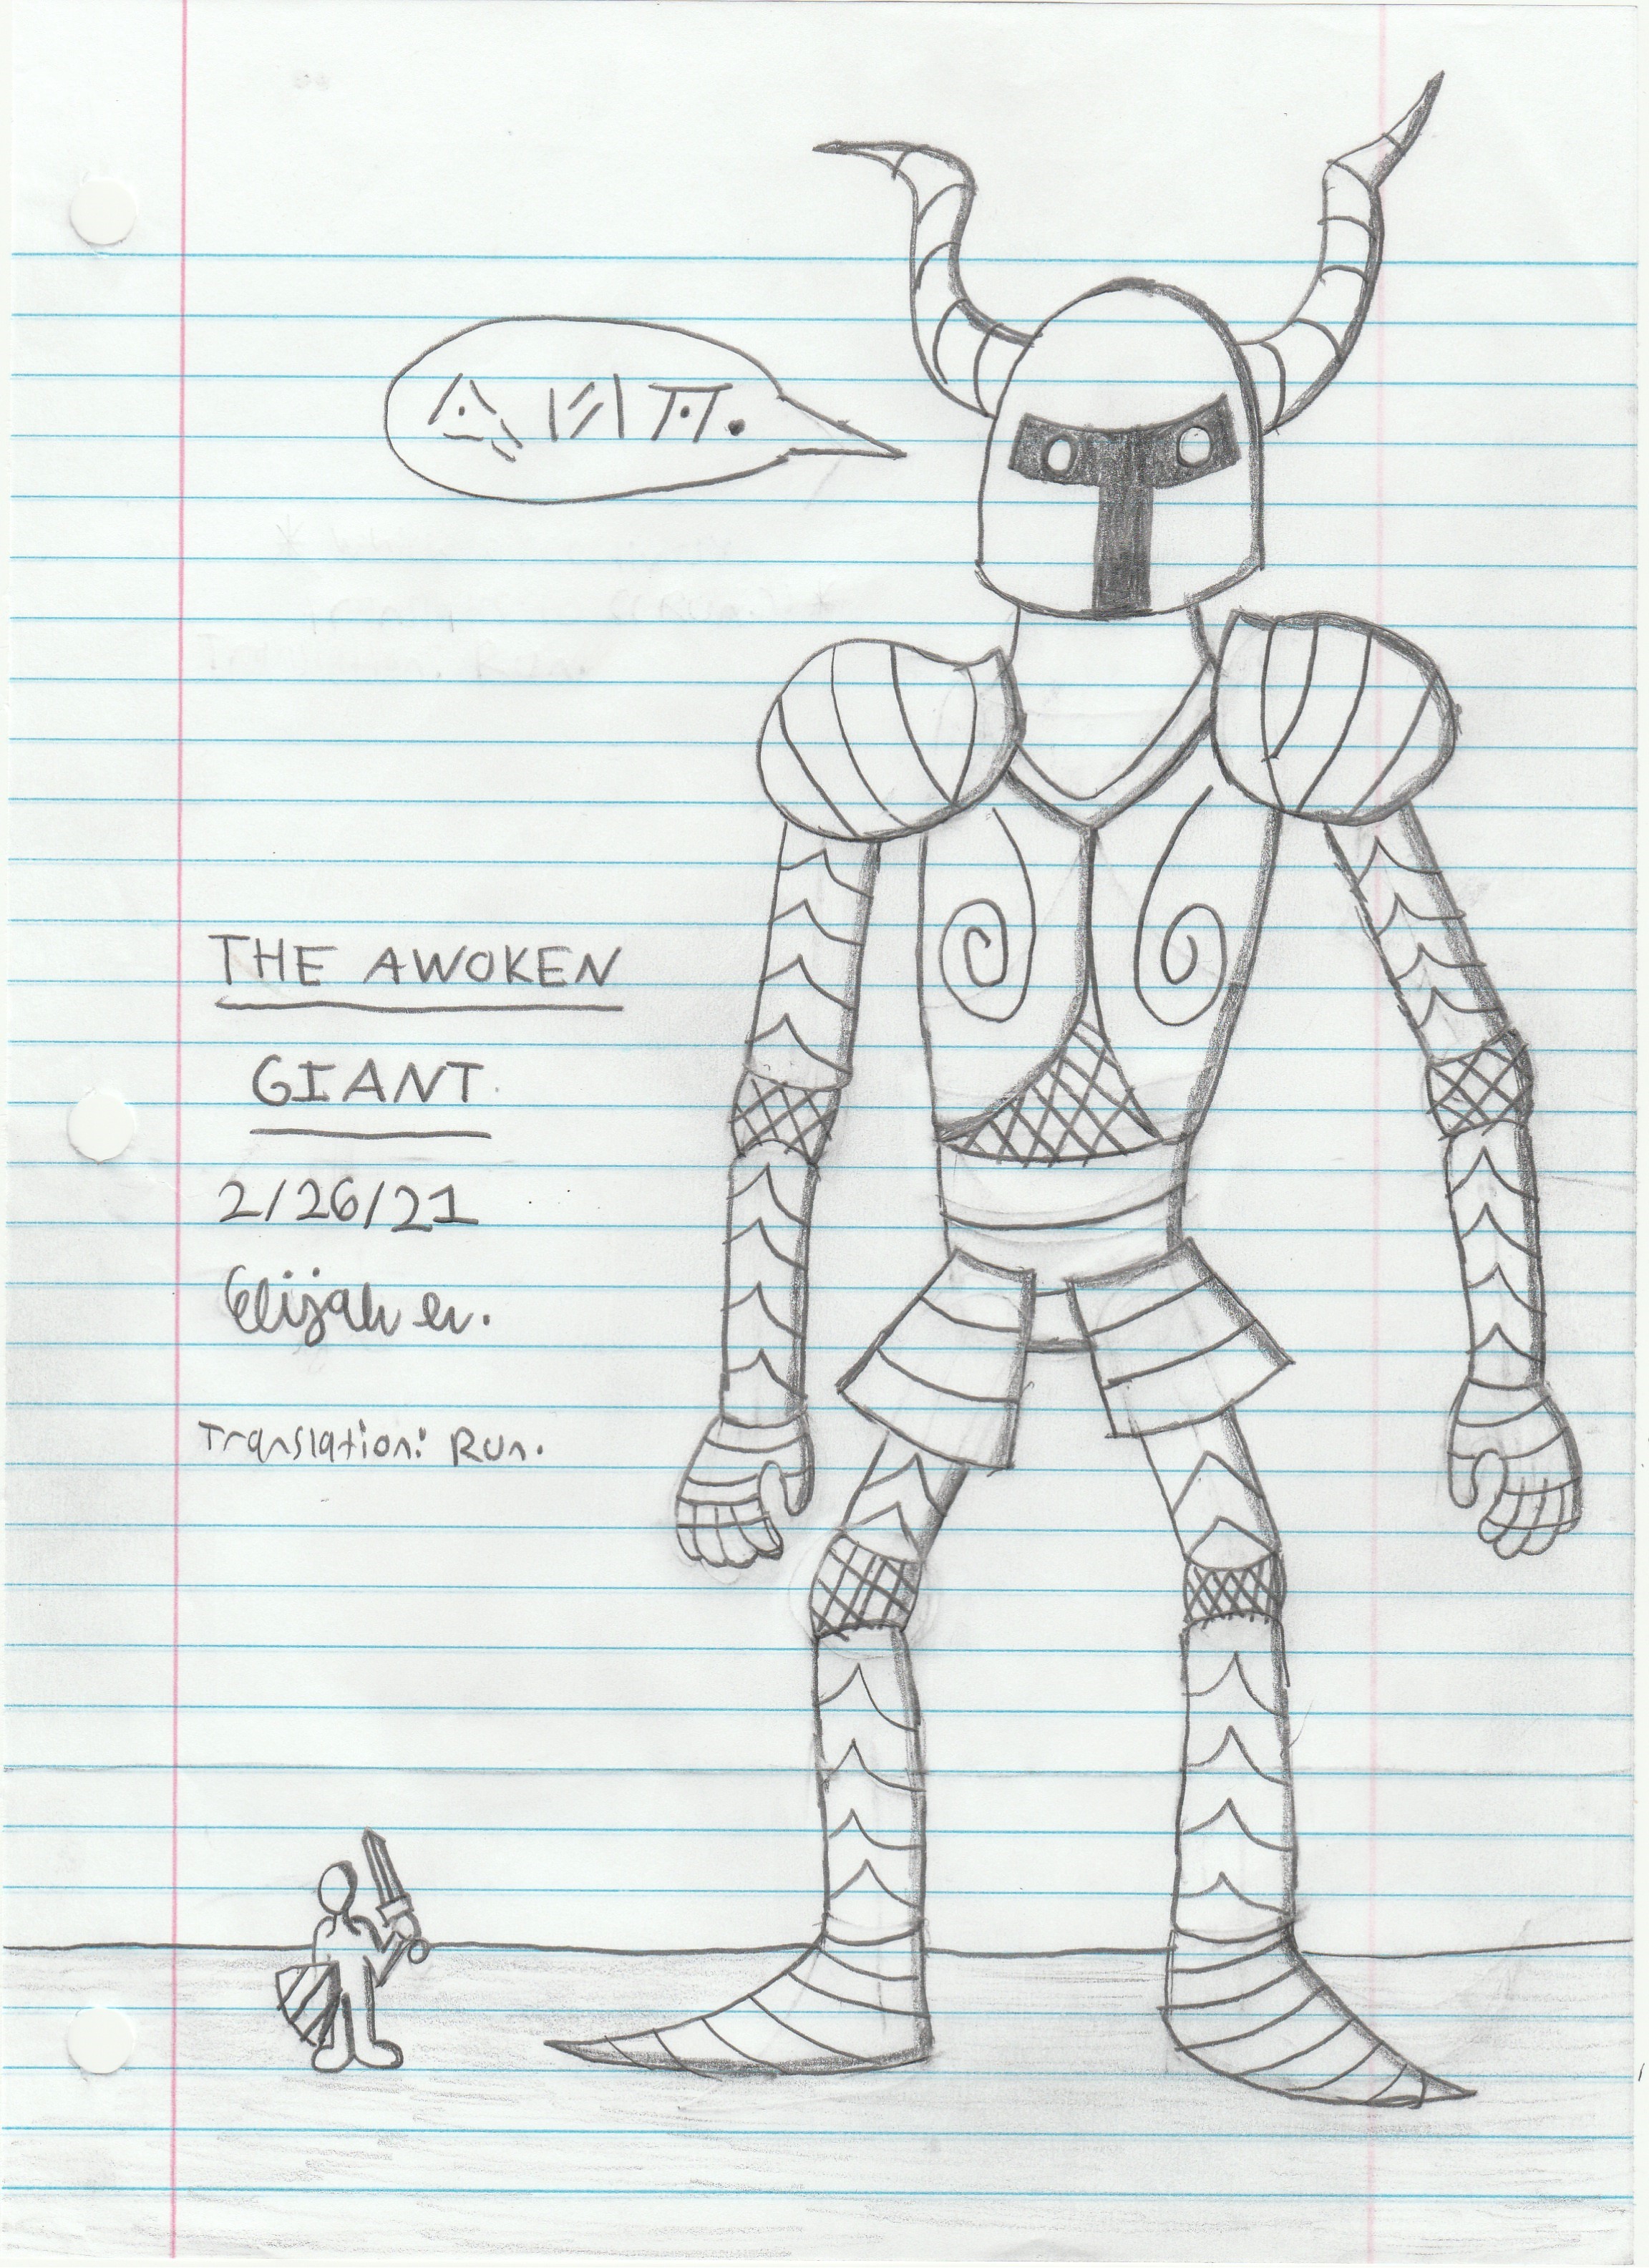 THE AWOKEN
GIANT
2/26/21
Elijah W.
Translation: Run.